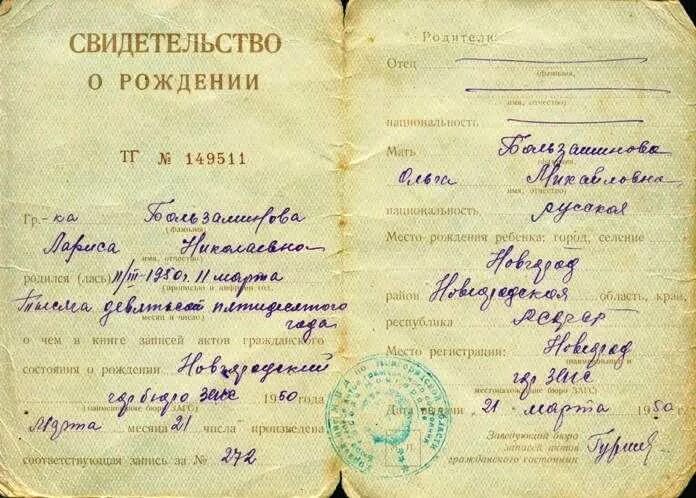 СВИДЕТЕЛЬСТВО
О РОЖДЕНИИ
ТГ № 149511
Гр.-ка Бользаминова
(фамилия)
Лариса Николаевна
(имя, отчество)
родился (лась) 11/III-1950г. 11 марта
(прописью и цифрами год,
тысяча девятьсот пятидесятого
месяц и число)
года
о чем в книге записей актов гражданского
состояния о рождении Новгородский
горбюро ЗАГС 1950 года
(наименование бюро ЗАГС)
марта месяца 21 числа произведена
соответствующая запись за № 272
Родители:
Отец
(фамилия,
имя, отчество)
национальность
Мать Бользаминова
(фамилия,
Ольга Михайловна
имя, отчество)
национальность русская
Место рождения ребенка: город, селение
Новгород
район Новгородская область, край,
республика РСФСР
Место регистрации: Новгород
гор ЗАГС
местонахождение бюро ЗАГС)
Дата выдачи „21“ марта 1950 г.
М. П.
Заведующий бюро
записей актов
гражданского состояния